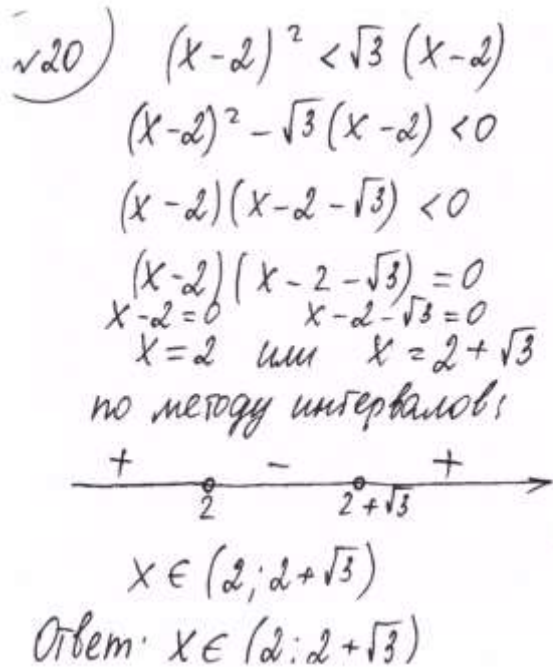 №20) (x-2)² < √3 (x-2)
(x-2)² - √3 (x-2) < 0
(x-2)(x-2-√3) < 0
(x-2)(x-2-√3) = 0
x-2=0 x-2-√3=0
x=2 или x=2+√3
по методу интервалов:
+ - +
2 2+√3
x ∈ (2; 2+√3)
Ответ: x ∈ (2; 2+√3)